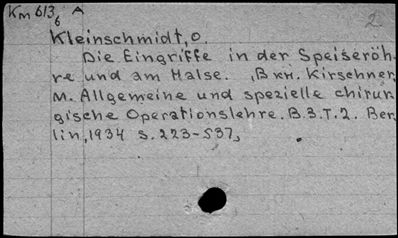 Км 613 A
6
2
Kleinschmidt, O
Die Eingriffe in der Speiseröh-
re und am Halse. Вкн. Kirschner,
M. Allgemeine und spezielle chirur-
gische Operationslehre. B.3.T.2. Ber-
lin, 1934 S. 223-537,